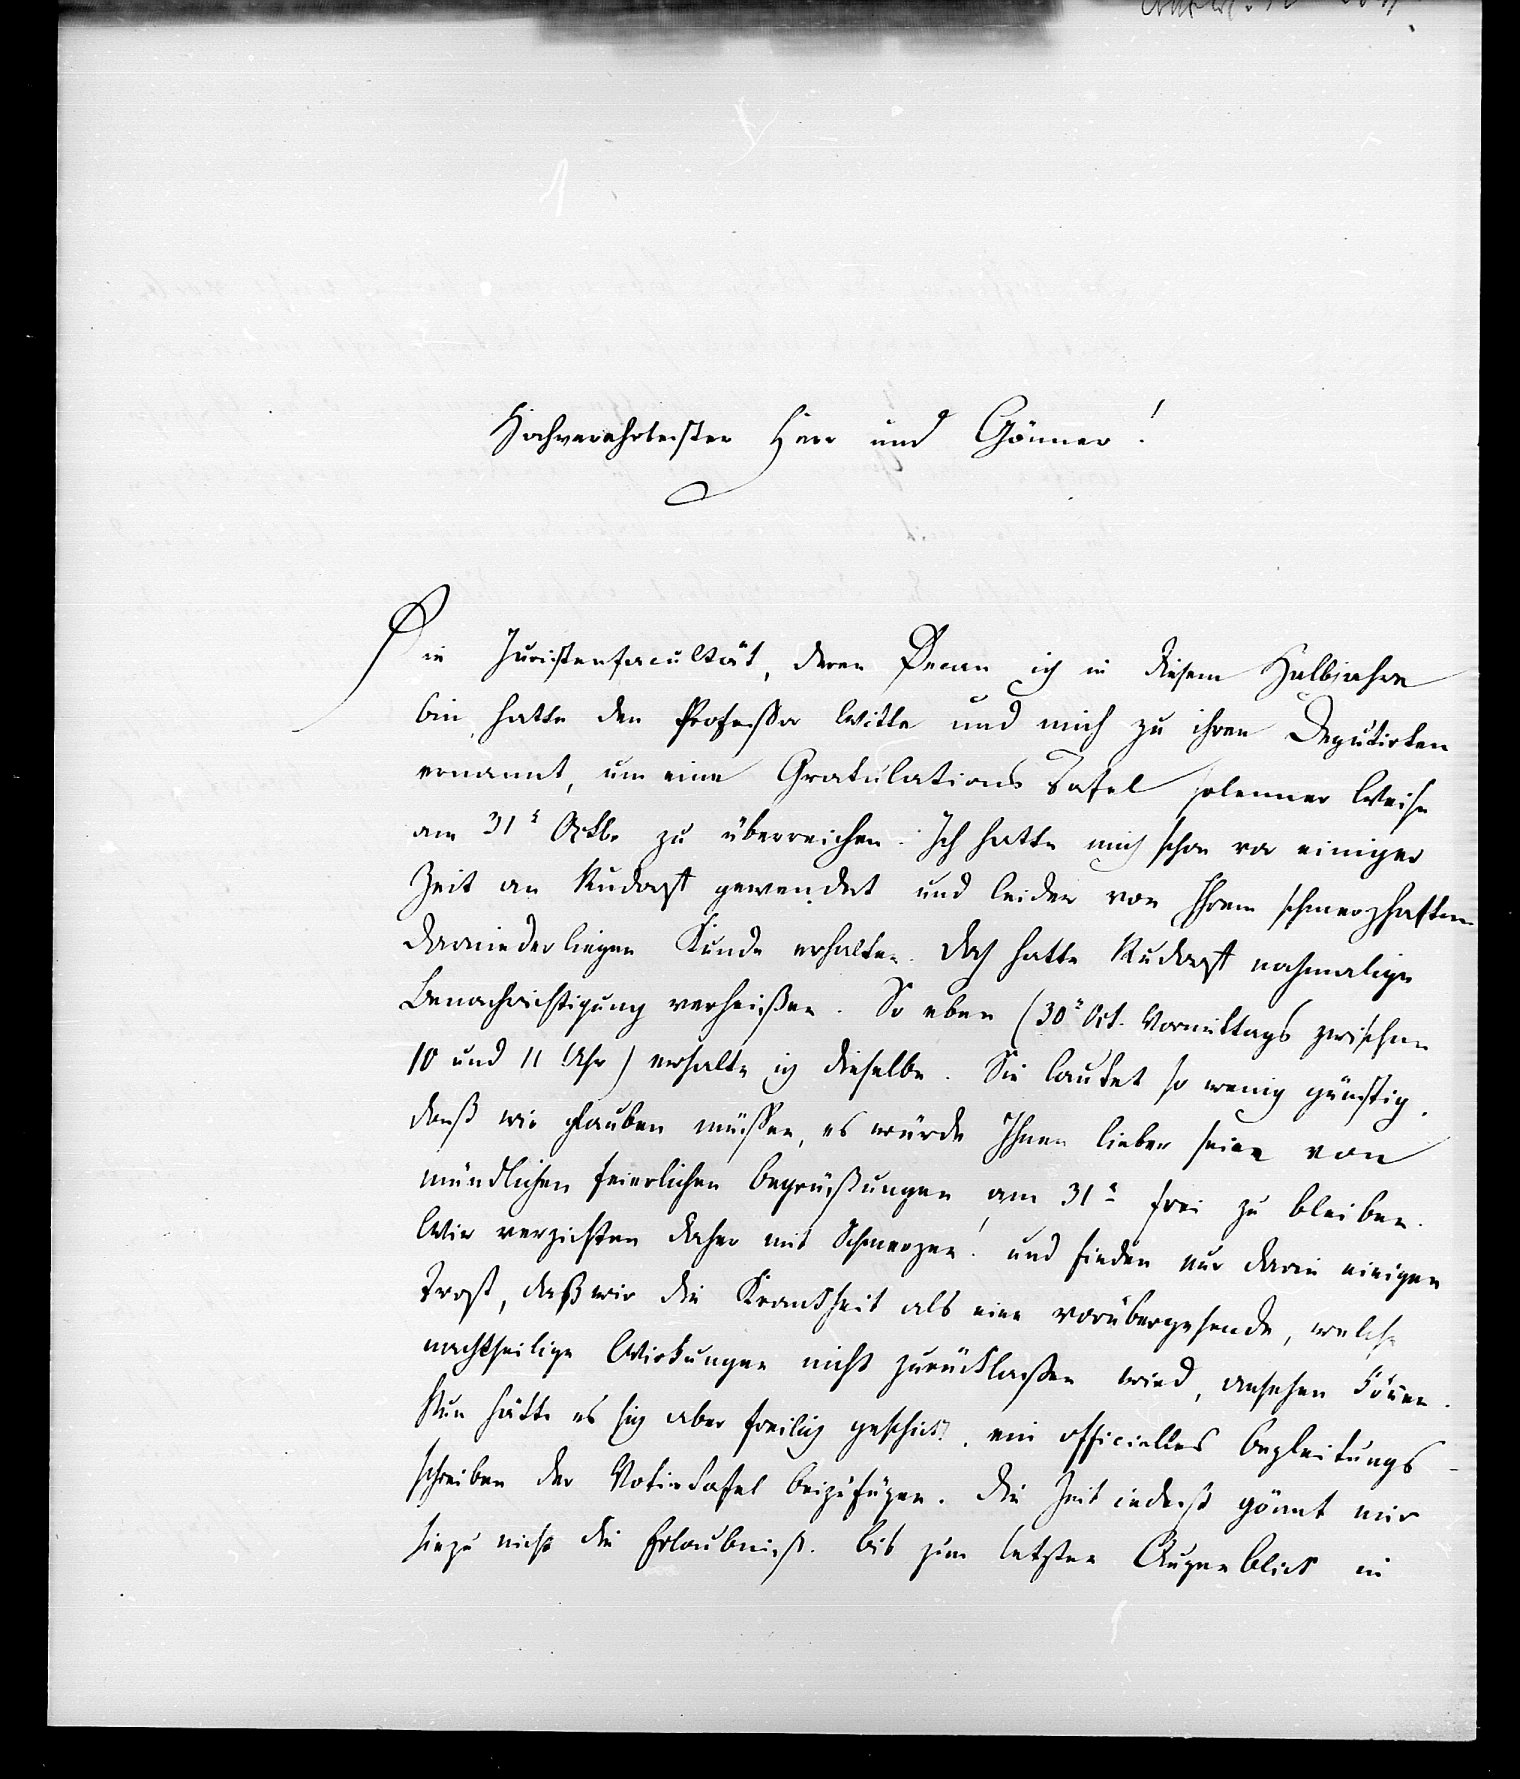 Hochverehrtester Herr und Gönner!
Die Juristenfacultät, deren Decan ich in diesem Halbjahre
bin, hatte den Professor Witte und mich zu ihren Deputirten
ernannt, um eine Gratulations Tafel solenner Weise
am 31ᵗ Octbr zu überreichen. Ich hatte mich schon vor einiger
Zeit an Rudorff gewendet und leider von Ihrem schmerzhaften
Darniederliegen Kunde erhalten. Doch hatte Rudorff nochmalige
Benachrichtigung verheißen. So eben (30ᵗ Oct. Vormittags zwischen
10 und 11 Uhr) erhalte ich dieselbe. Sie lautet so wenig günstig,
daß wir glauben müssen, es würde Ihnen lieber seien von
mündlichen feierlichen Begrüßungen am 31ᵗ frei zu bleiben.
Wir verzichten daher mit Schmerzen! und finden nur darin einigen
Trost, daß wir die Krankheit als eine vorübergehende, welche
nachtheilige Wirkungen nicht zurücklassen wird, ansehen können.
Nun hätte es sich aber freilich geschickt, ein officielles Begleitungs-
schreiben der Votivtafel beizufügen. Die Zeit indeß gönnt mir
hiezu nicht die Erlaubniß. Bis zum letzten Augenblick in